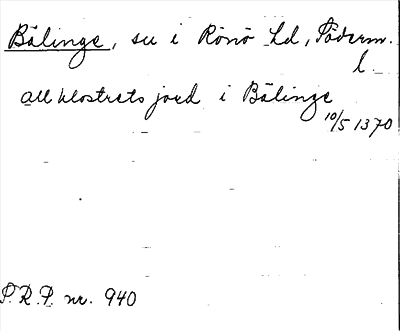 Bälinge, sn i Rönö hd, Söderm.
l.
all klostrets jord i Bälinge
10/5 1370
P.R.P. nr. 940